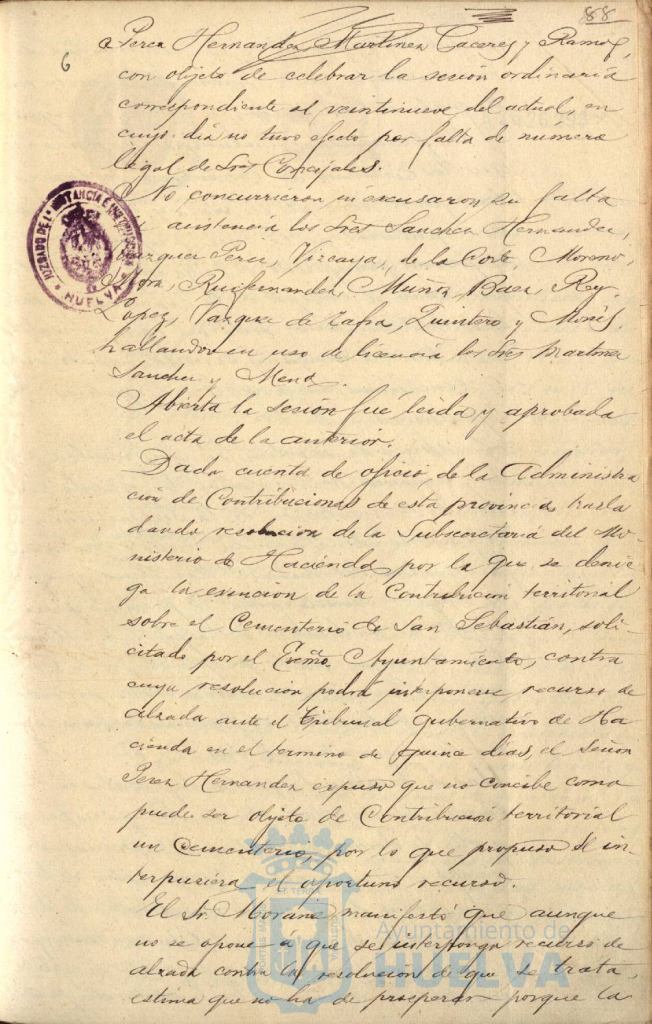 88
6
Perez Hernandez, Martinez Caceres y Ramos,
con objeto de celebrar la sesión ordinaria
correspondiente al veintinueve del actual, en
cuyo dia no tuvo efecto por falta de numero
legal de Sres Concejales.
No concurrieron ni excusaron su falta
asistencia los Sres Sanchez Hernandez,
Vazquez Perez, Vizcaya, de la Corte, Moreno,
Mora, Ruifernandez, Muñoz, Baez, Rey,
Lopez, Vazquez de Zafra, Quintero y
hallandose en uso de licencia los Sres Martinez
Sanchez y Mena.
Abierta la sesión fué leida y aprobada
el acta de la anterior.
Dada cuenta de oficio de la Administra
ción de Contribuciones de esta provincia trasla
dando resolucion de la Subsecretaría del Mi-
nisterio de Hacienda por la que se denie
ga la exención de la Contribucion territorial
sobre el Cementerio de San Sebastián, soli-
citado por el Excmo. Ayuntamiento, contra
cuya resolución podrá interponerse recurso de
alzada ante el Tribunal gubernativo de Ha
cienda en el termino de quince dias, el Señor
Perez Hernandez expuso que no concibe como
puede ser objeto de Contribución territorial
un Cementerio, por lo que propuso se in-
terpusiera el oportuno recurso.
El Sr. manifestó que aunque
no se opone á que se interponga recurso de
alzada contra la resolucion de que se trata,
estima que no ha de prosperar porque la
JUZGADO DE 1ª INSTANCIA É INSTRUCCIÓN
HUELVA
Ayuntamiento de
HUELVA